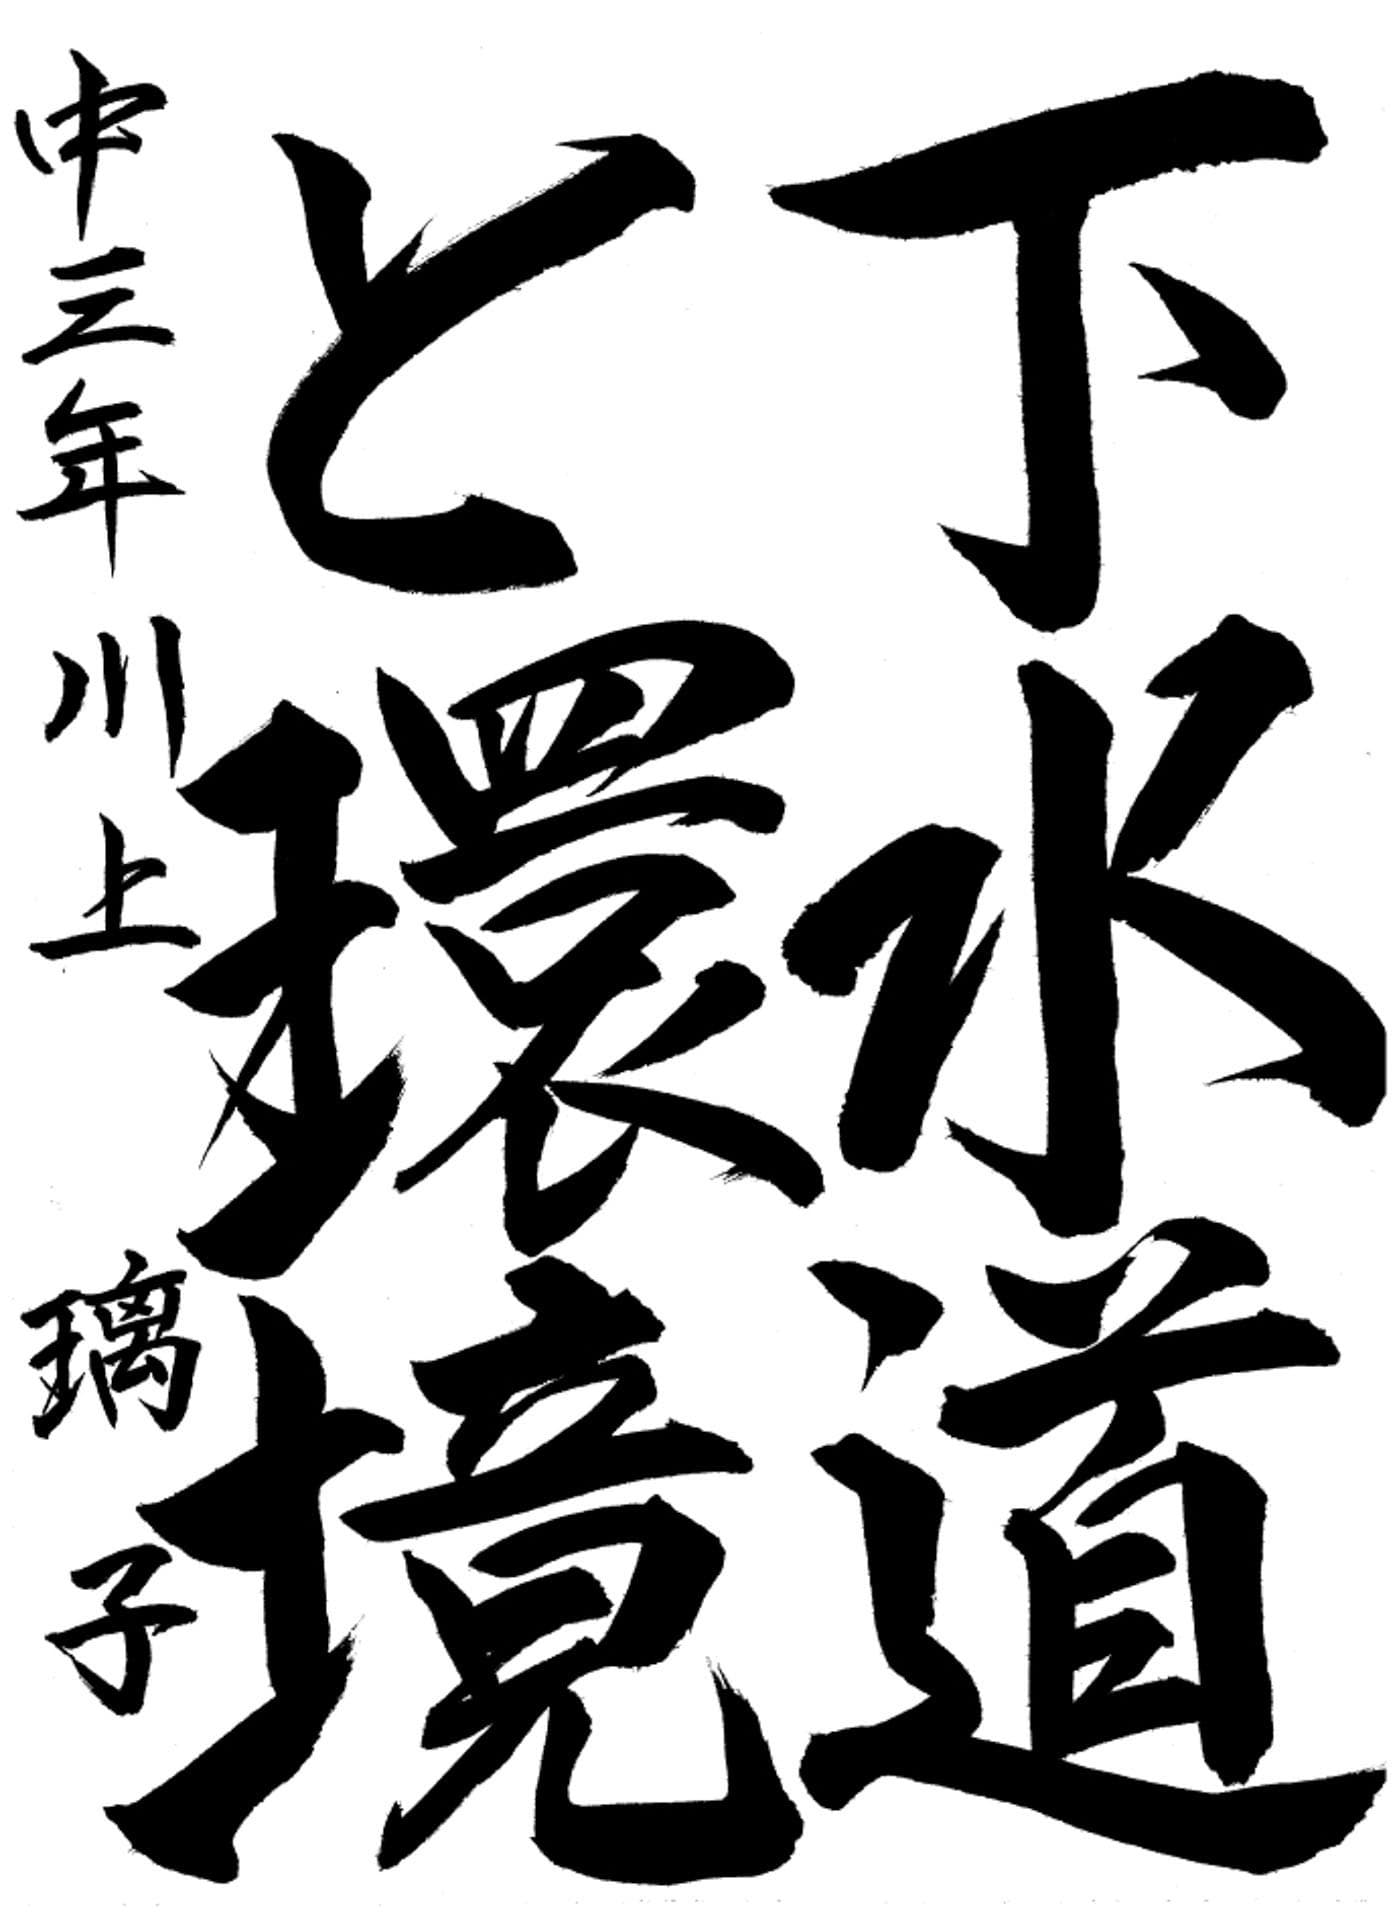 下水道
と環境
中三年 川上 璃子